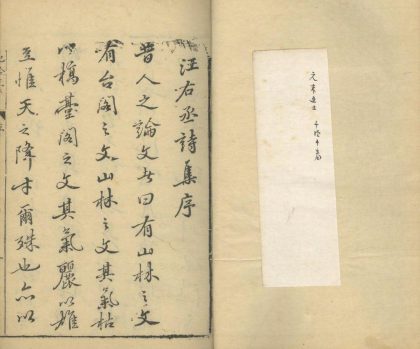 汪右丞詩集序
昔人之論文者曰有山林之文
有台閣之文山林之文其氣枯
以槁臺閣之文其氣麗以雄
豈惟天之降才爾殊也亦以